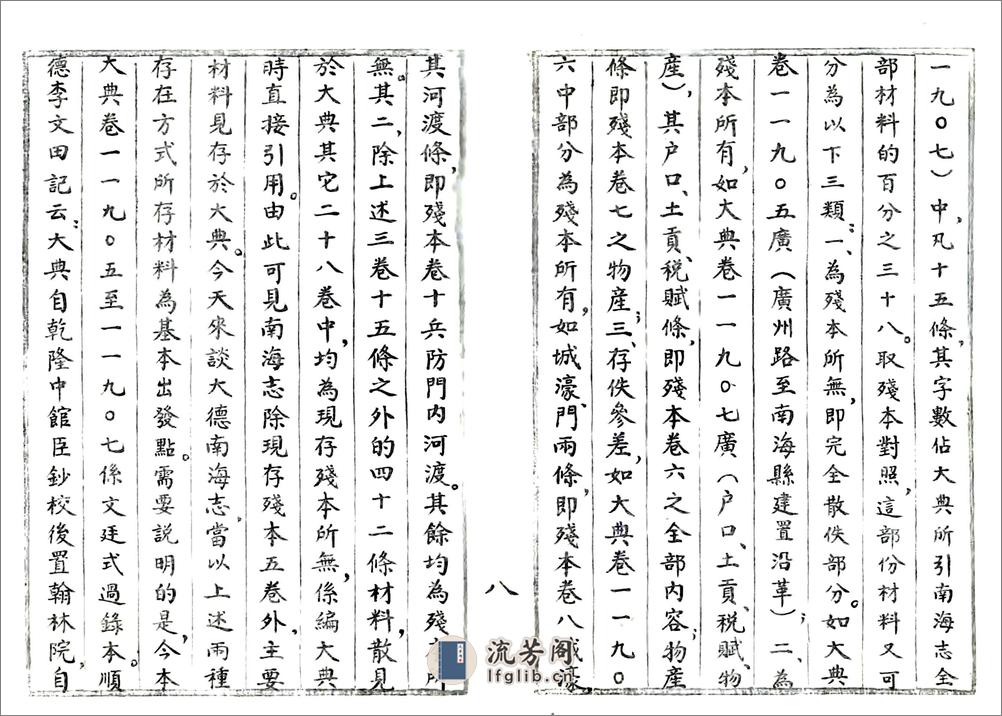 一九〇七）中，凡十五條，其字數佔大典所引南海志全
部材料的百分之三十八。取殘本對照，這部份材料又可
分為以下三類：一、為殘本所無，即完全散佚部分。如大典
卷一一九〇五廣（廣州路至南海縣建置沿革）；二、為
殘本所有，如大典卷一一九〇七廣（户口、土貢、税賦、物
產），其户口、土貢、税賦條，即殘本卷六之全部內容；物產
條即殘本卷七之物產；三、存佚參差，如大典卷一一九〇
六中部分為殘本所有，如城濠、門兩條，即殘本卷八城濠，
八
其河渡條，即殘本卷十兵防門內河渡。其餘均為殘
無。其二，除上述三卷十五條之外的四十二條材料，散見
於大典其它二十八卷中，均為現存殘本所無，係編大典
時直接引用。由此可見南海志除現存殘本五卷外，主要
材料見存於大典。今天來談大德南海志，當以上述兩種
存在方式所存材料為基本出發點。需要説明的是，今本
大典卷一一九〇五至一一九〇七係文廷式過錄本。順
德李文田記云：大典自乾隆中館臣鈔校後置翰林院，自
流芳阁
lfglib.cn